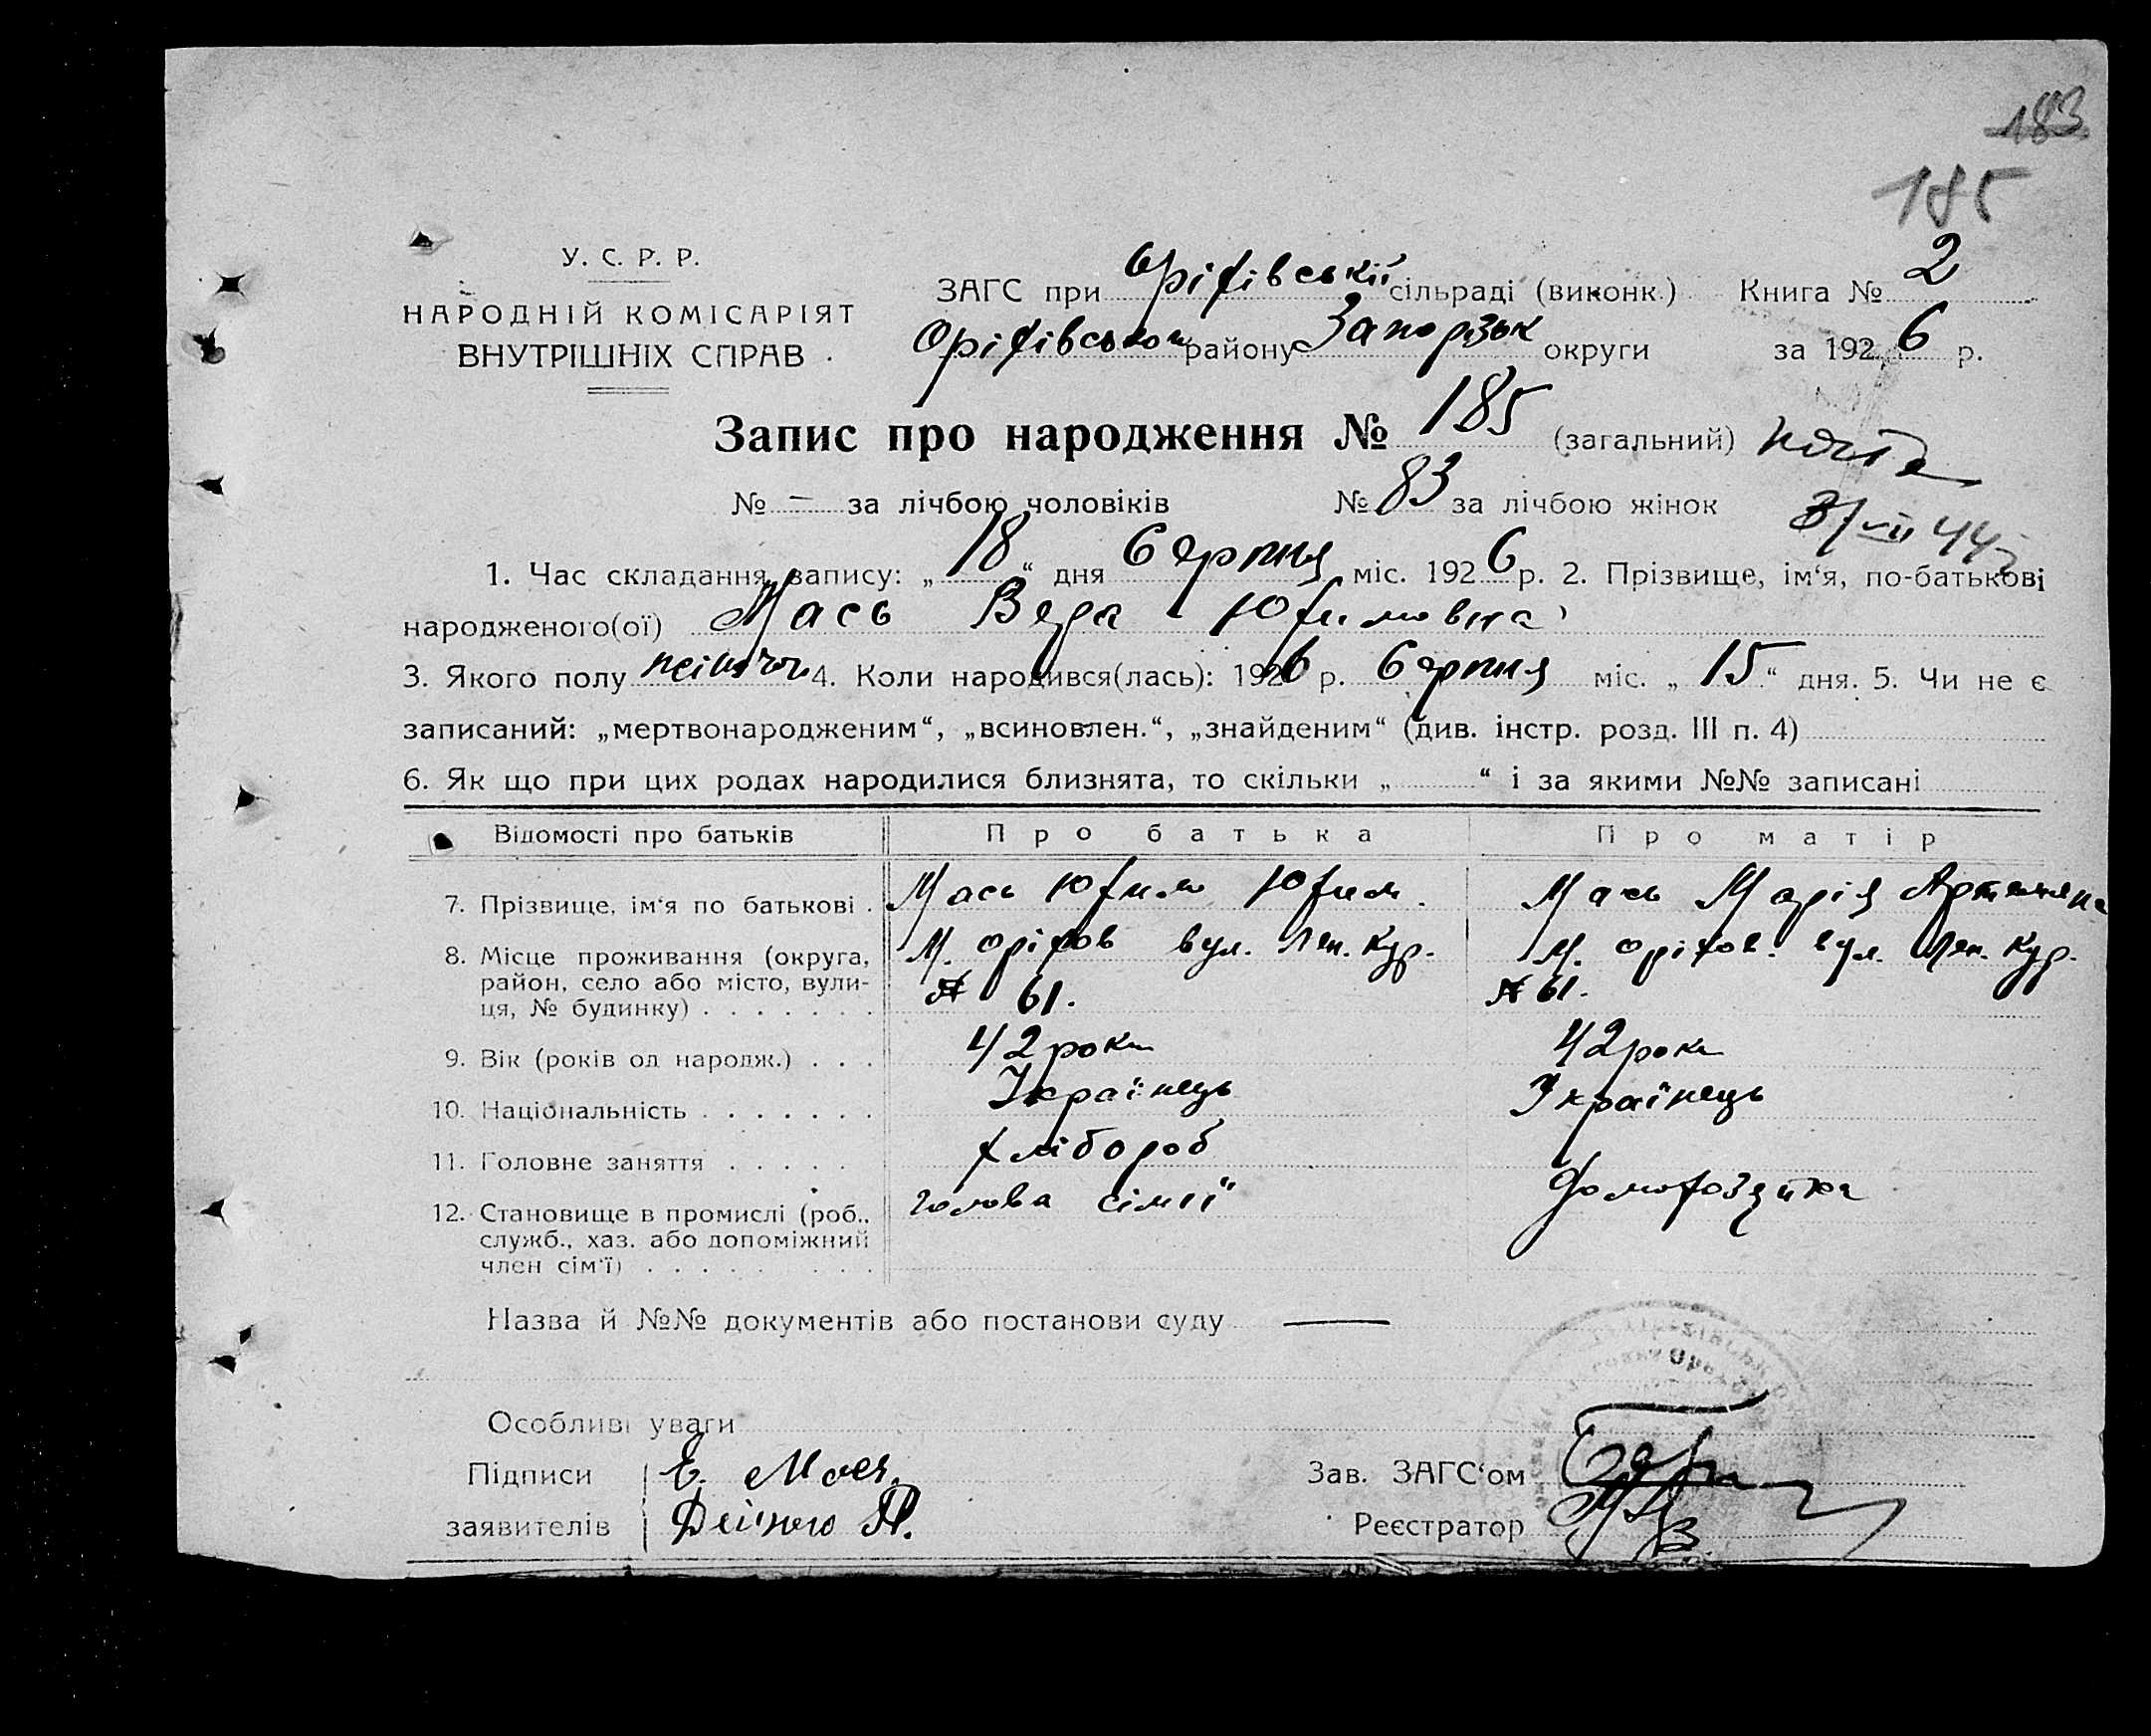 183
185
У. С. Р. Р.
НАРОДНІЙ КОМІСАРІЯТ
ВНУТРІШНІХ СПРАВ
ЗАГС при Оріхівській сільраді (виконк.) Книга № 2
Оріхівського району Запорізьк округи за 1926 р.
Запис про народження № 185 (загальний)
№ — за лічбою чоловіків № 83 за лічбою жінок
1. Час складання запису: „18“ дня Серпня міс. 1926 р. 2. Прізвище, ім‘я, по-батькові
народженого(ої) Мась Вера Юхимовна
3. Якого полу жіночого 4. Коли народився(лась): 1926 р. Серпня міс. „15“ дня. 5. Чи не є
записаний: „мертвонародженим“, „всиновлен.“, „знайденим“ (див. інстр. розд. III п. 4)
6. Як що при цих родах народилися близнята, то скільки „ “ і за якими №№ записані
Відомості про батьків Про батька Про матір
7. Прізвище, ім‘я по батькові . Мась Юхим Юхим. Мась Марія
8. Місце проживання (округа, район, село або місто, вулиця, № будинку) М. Оріхов вул. Лен. Кур. № 61. М. Оріхов. вул. Лен. Кур. № 61.
9. Вік (років од народж.) . . . 42 роки 42 роки
10. Національність . . . . . . . Українець Українець
11. Головне заняття . . . . . Хлібороб Домохозяйка
12. Становище в промислі (роб., служб., хаз. або допоміжний член сім‘ї) голова сімії
Назва й №№ документів або постанови суду —
Особливі уваги
Підписи Е. Мась Зав. ЗАГС‘ом
заявителів Реєстратор